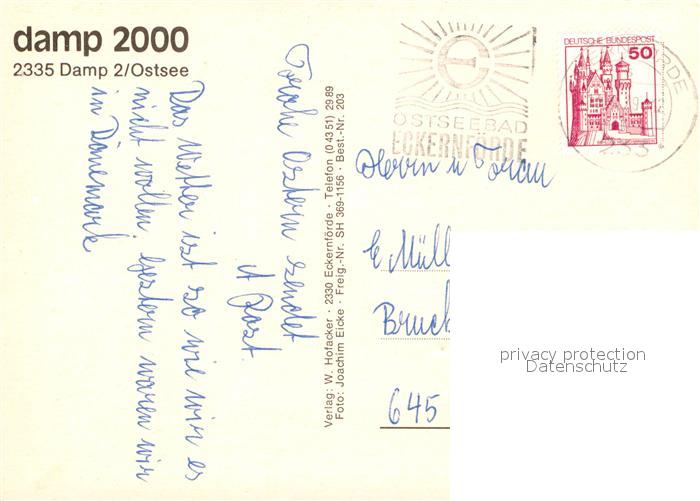 damp 2000
2335 Damp 2/Ostsee
Frohe Ostern sendet
A Post.
Das Wetter ist so wie wir es
nicht wollen, gestern waren wir
in Dänemark
Verlag: W. Hofacker · 2330 Eckernförde · Telefon (0 43 51) 29 89
Foto: Joachim Eicke · Freig.-Nr. SH 369-1156 · Best.-Nr. 203
OSTSEEBAD
ECKERNFÖRDE
DEUTSCHE BUNDESPOST
50
233
Herrn u Frau
E Müll
Bruck
645
privacy protection
Datenschutz